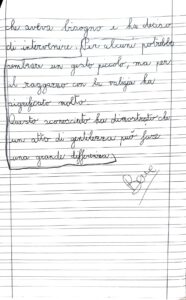 che aveva bisogno e ha deciso
di intervenire. Per alcuni potrebbe
sembrare un gesto piccolo, ma per
il ragazzo con la valigia ha
significato molto.
Questo sconosciuto ha dimostrato che
un atto di gentilezza può fare
una grande differenza.
Bene